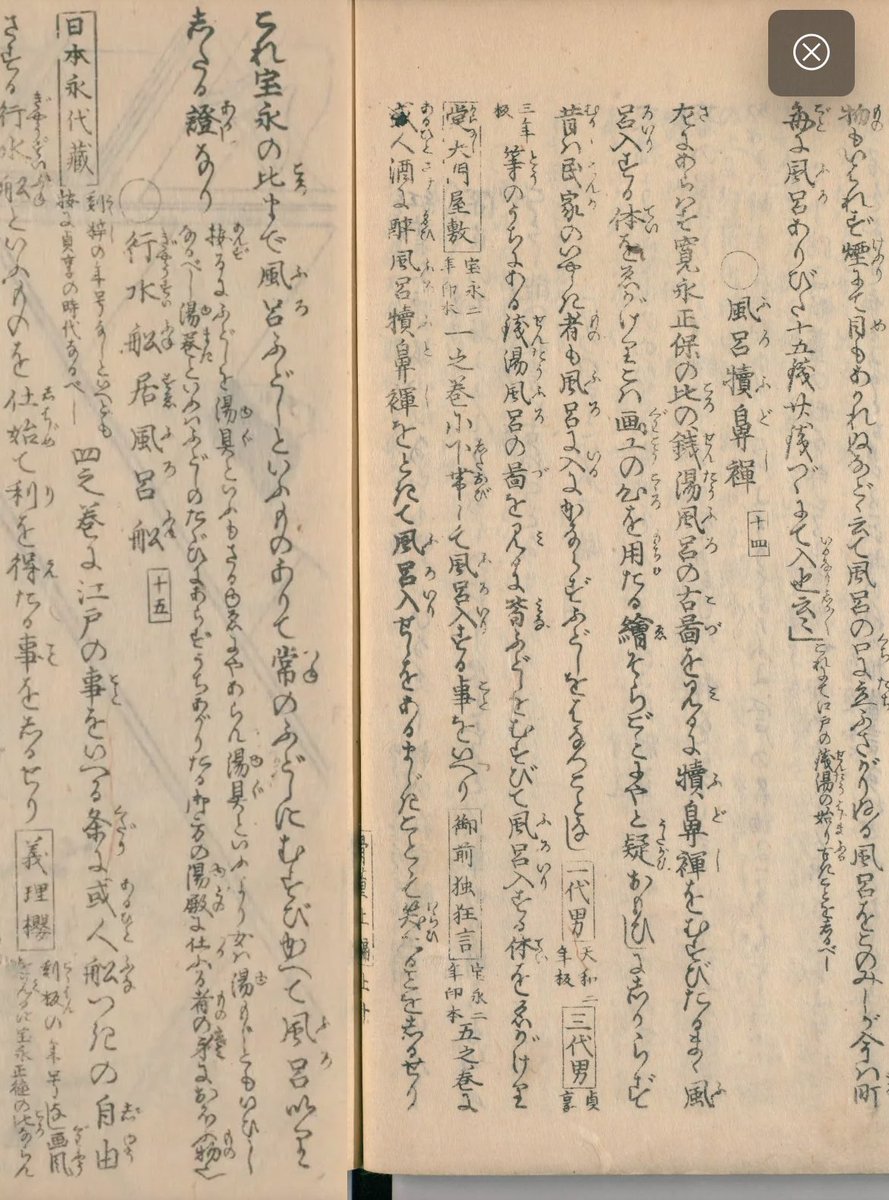 物もいはれず煙にて目もあかれぬなどゝ云て風呂の口に立ふさがりぬる風呂をこのみしが今は町
毎に風呂ありびた十五銭廿銭づゝにて入也云云」これにて江戸の銭湯の始り古きことを知るべし
○風呂犢鼻褌 十四
左にあらはす寛永正保の比の銭湯風呂の古啚を見るに犢鼻褌をむすびたるまゝ風
呂入する体をゑがけりこは画工の心を用たる繪そらごとにやと疑おもひしにしからず
昔は民家のいやしき者も風呂に入にかならずふどしをはなつことなし 一代男 天和二年板 三代男 貞享
三年板 等のうちにある銭湯風呂の啚を見るに皆ふどしをむすびて風呂入する体をゑがけり
大門屋敷 宝永二年印本 一之巻に下帯して風呂入する事をいへり 御前独狂言 宝永二年印本 五之巻に
或人酒に酔風呂犢鼻褌をときて風呂入せしをあるまじきことゝて笑へることを志るせり
これ宝永の比まで風呂ふどしといふものありて常のふどしにむすびかへて風呂
志たる證なり 按るにふどしを湯具といふもさるゆゑにやあらん湯具といふより女は湯もじともいひし
なるべし湯巻といふはふどしのたぐひにあらず
○行水船居風呂船 十五
日本永代蔵 刻梓の年号なしといへども
按に貞享の時代なるべし 四之巻に江戸の事をいへる条に或人船つきの自由
さする行水船といふものを仕始て利を得たる事を志るせり 義理櫻